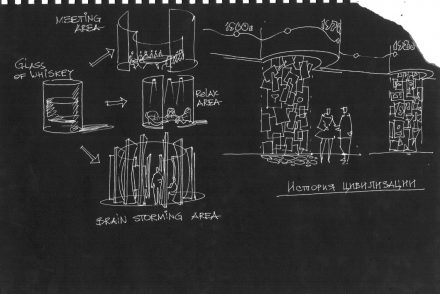 MEETING
AREA
GLASS
OF WHISKEY
RELAX
AREA
BRAIN STORMING AREA
ИСТОРИЯ ЦИВИЛИЗАЦИИ